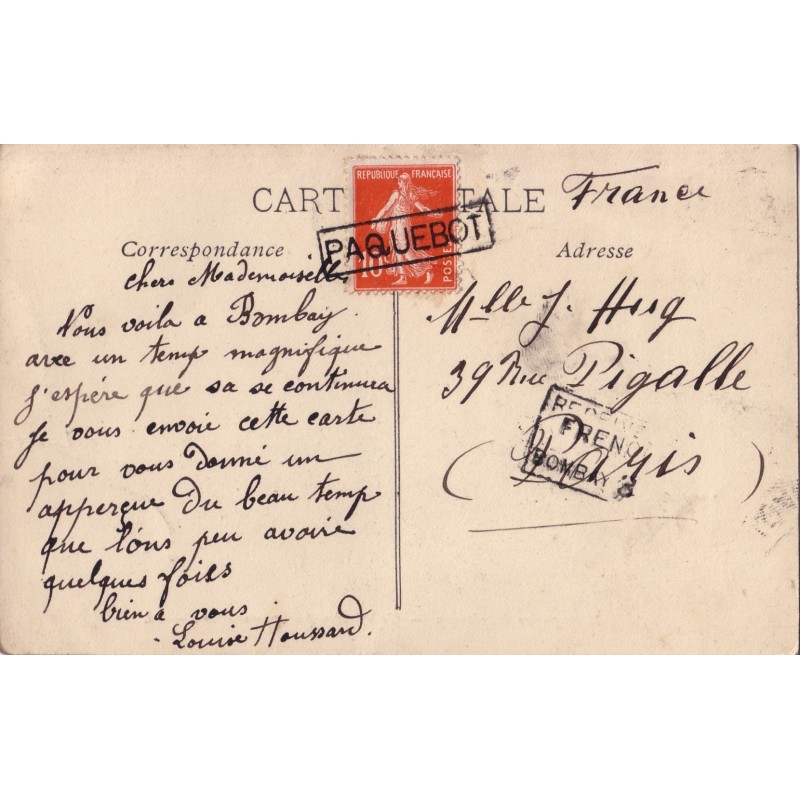 CARTE POSTALE
France
REPUBLIQUE FRANÇAISE
10c
POSTES
PAQUEBOT
Correspondance
Adresse
chers Mademoiselle
Vous voila a Bombay
avec un temp magnifique
j'espére que sa se continura
Je vous envoie cette carte
pour vous donné un
apperçue du beau temp
que l'ons peu avoire
quelques foiis
bien a vous
Louise Houssard.
Mlle J. Hug
39 Rue Pigalle
Paris
FRENC
BOMBAY